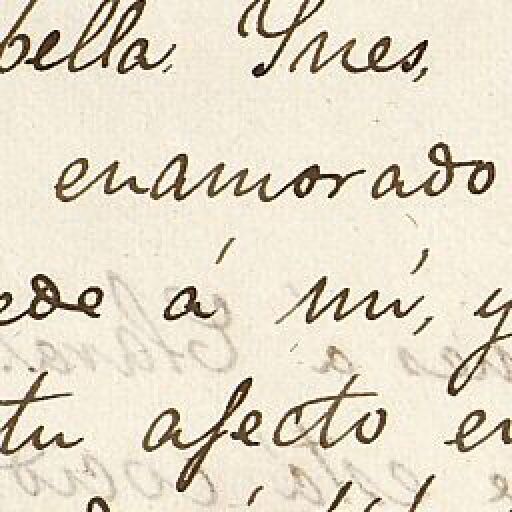 bella Ynes,
enamorado
ede á mí, y
tu afecto en